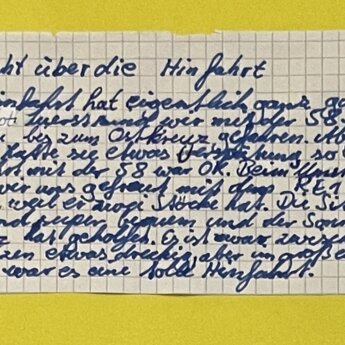 ht über die Hinfahrt
hat eigentlich ganz g
zuerst sind wir mit der S8
bis zum Ostkreuz gefahren.
hatte sie etwas Verspätung, so
mit der S8 war OK. Beim
wir uns gefreut mit dem RE1
weil er zwei Stöcke hat. Die Si
super bequem und der Son
hat geholfen. Es ist zwar
etwas dreckig, aber im große
war es eine tolle Hinfahrt.